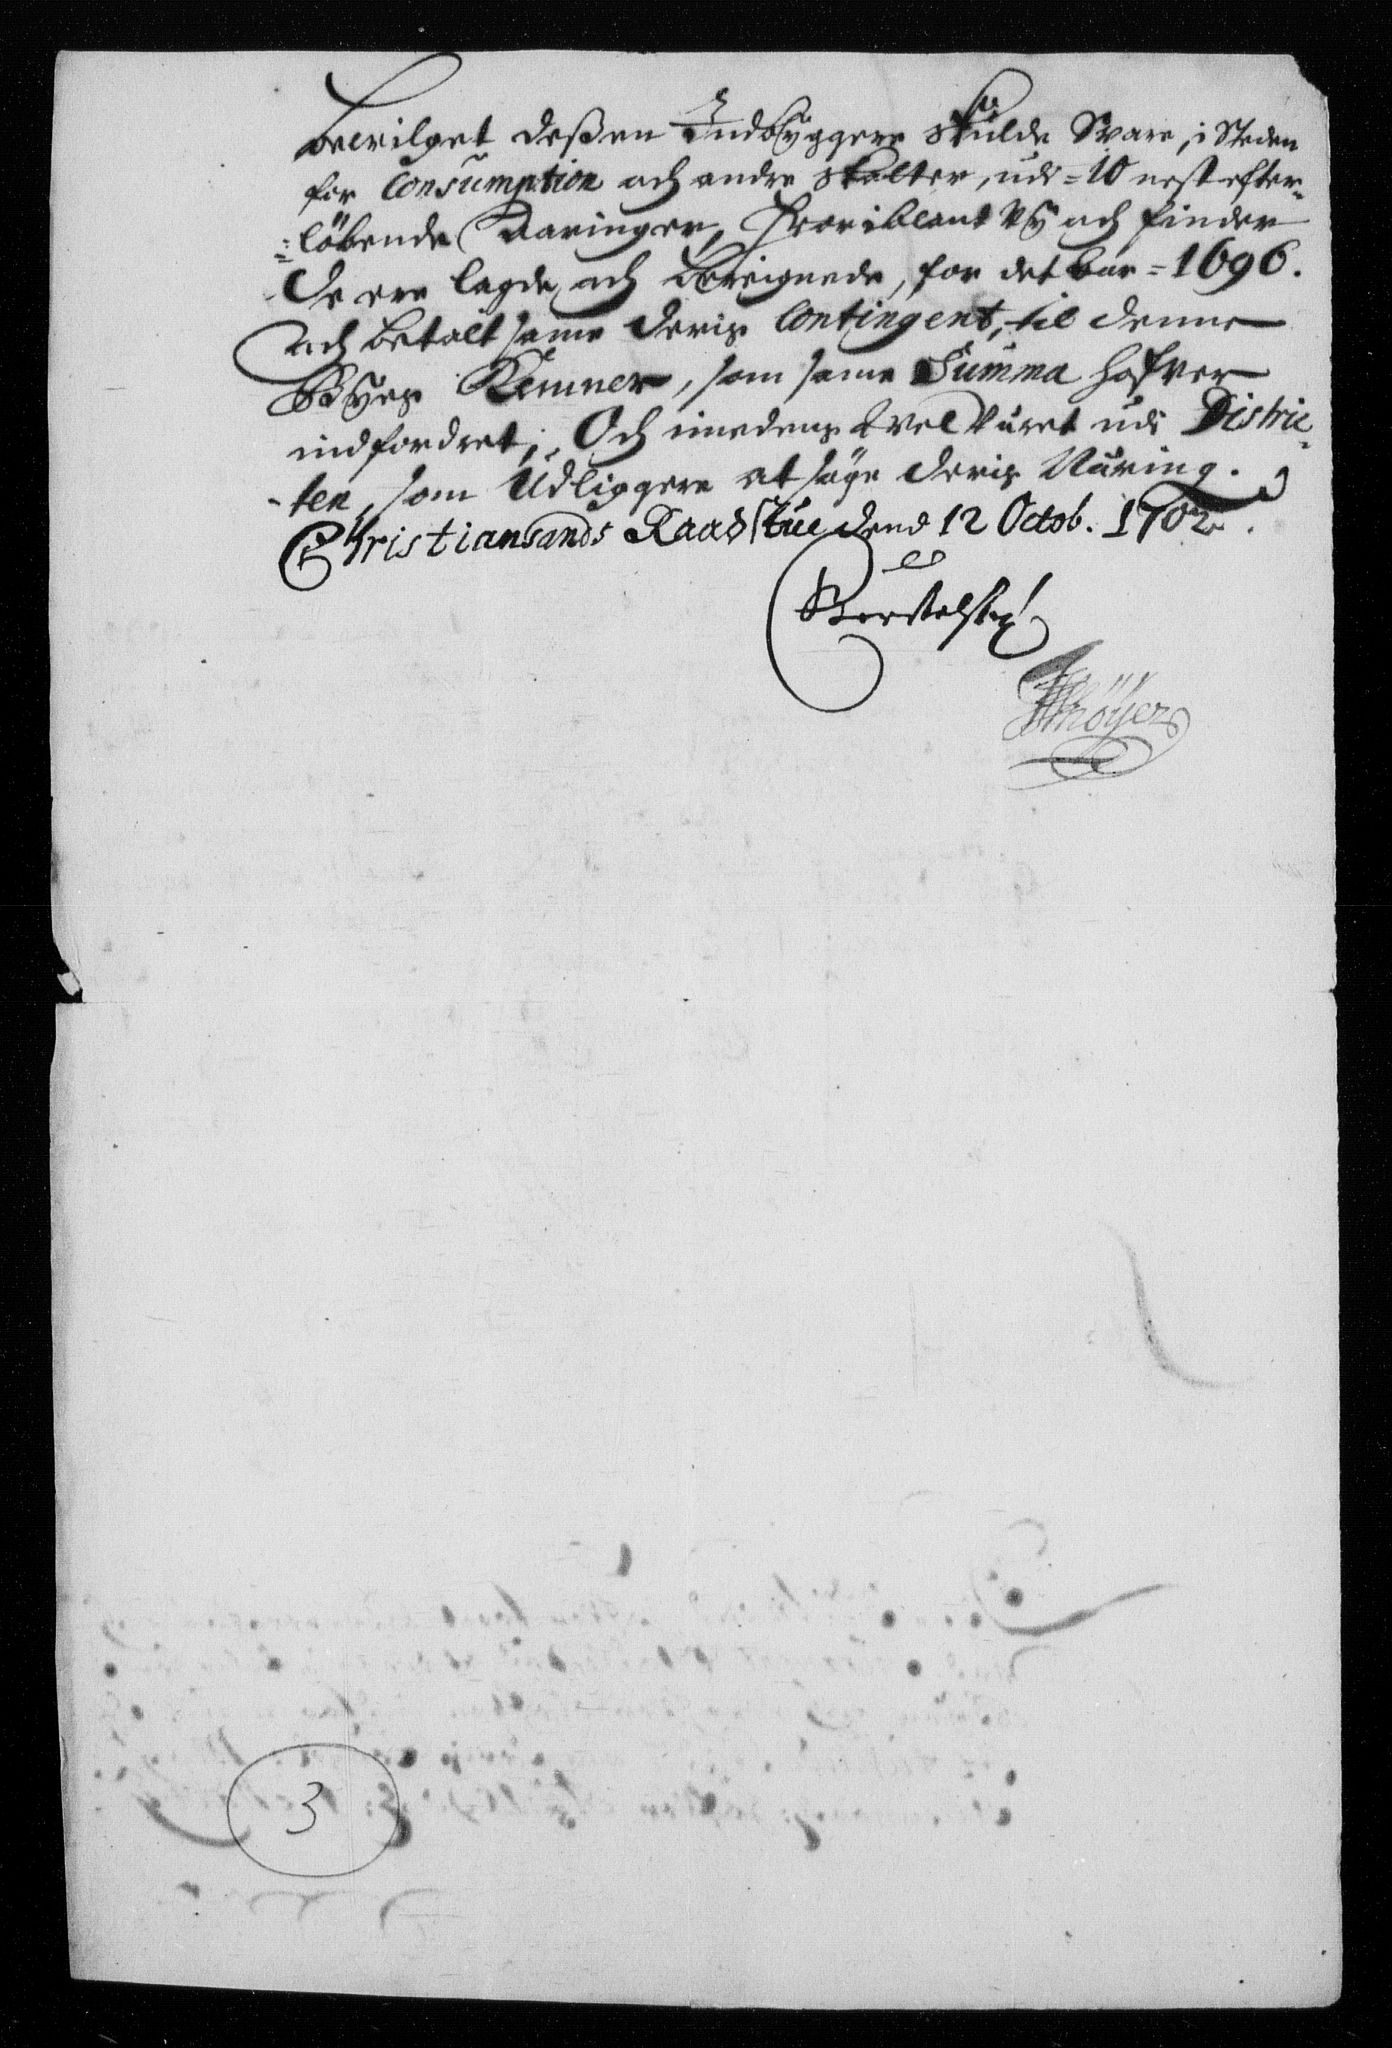 bevilget deßen Indbÿggere skulde Svare, i Steden
for Consumption och andre skatter, udi = 10 nest efter=
=löbende Aaringer, Hvoriblant Vÿ och finder
De ere lagde och bereignede, for det Aar = 1696.
och betalt same deris Contingent, til denne
Bÿes Kemner, som same Summa hafver
indfordret; Och imedens veluæret udi Distric=
=ten, som Udliggere at söge deris Næring.
Christiansands Raadstue dend 12 Octob. 1702.
Höÿer
3